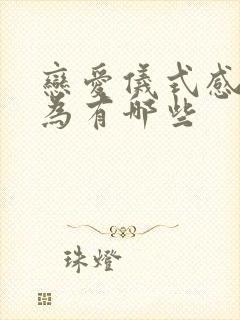 戀愛儀式感
為有哪些
珠燈